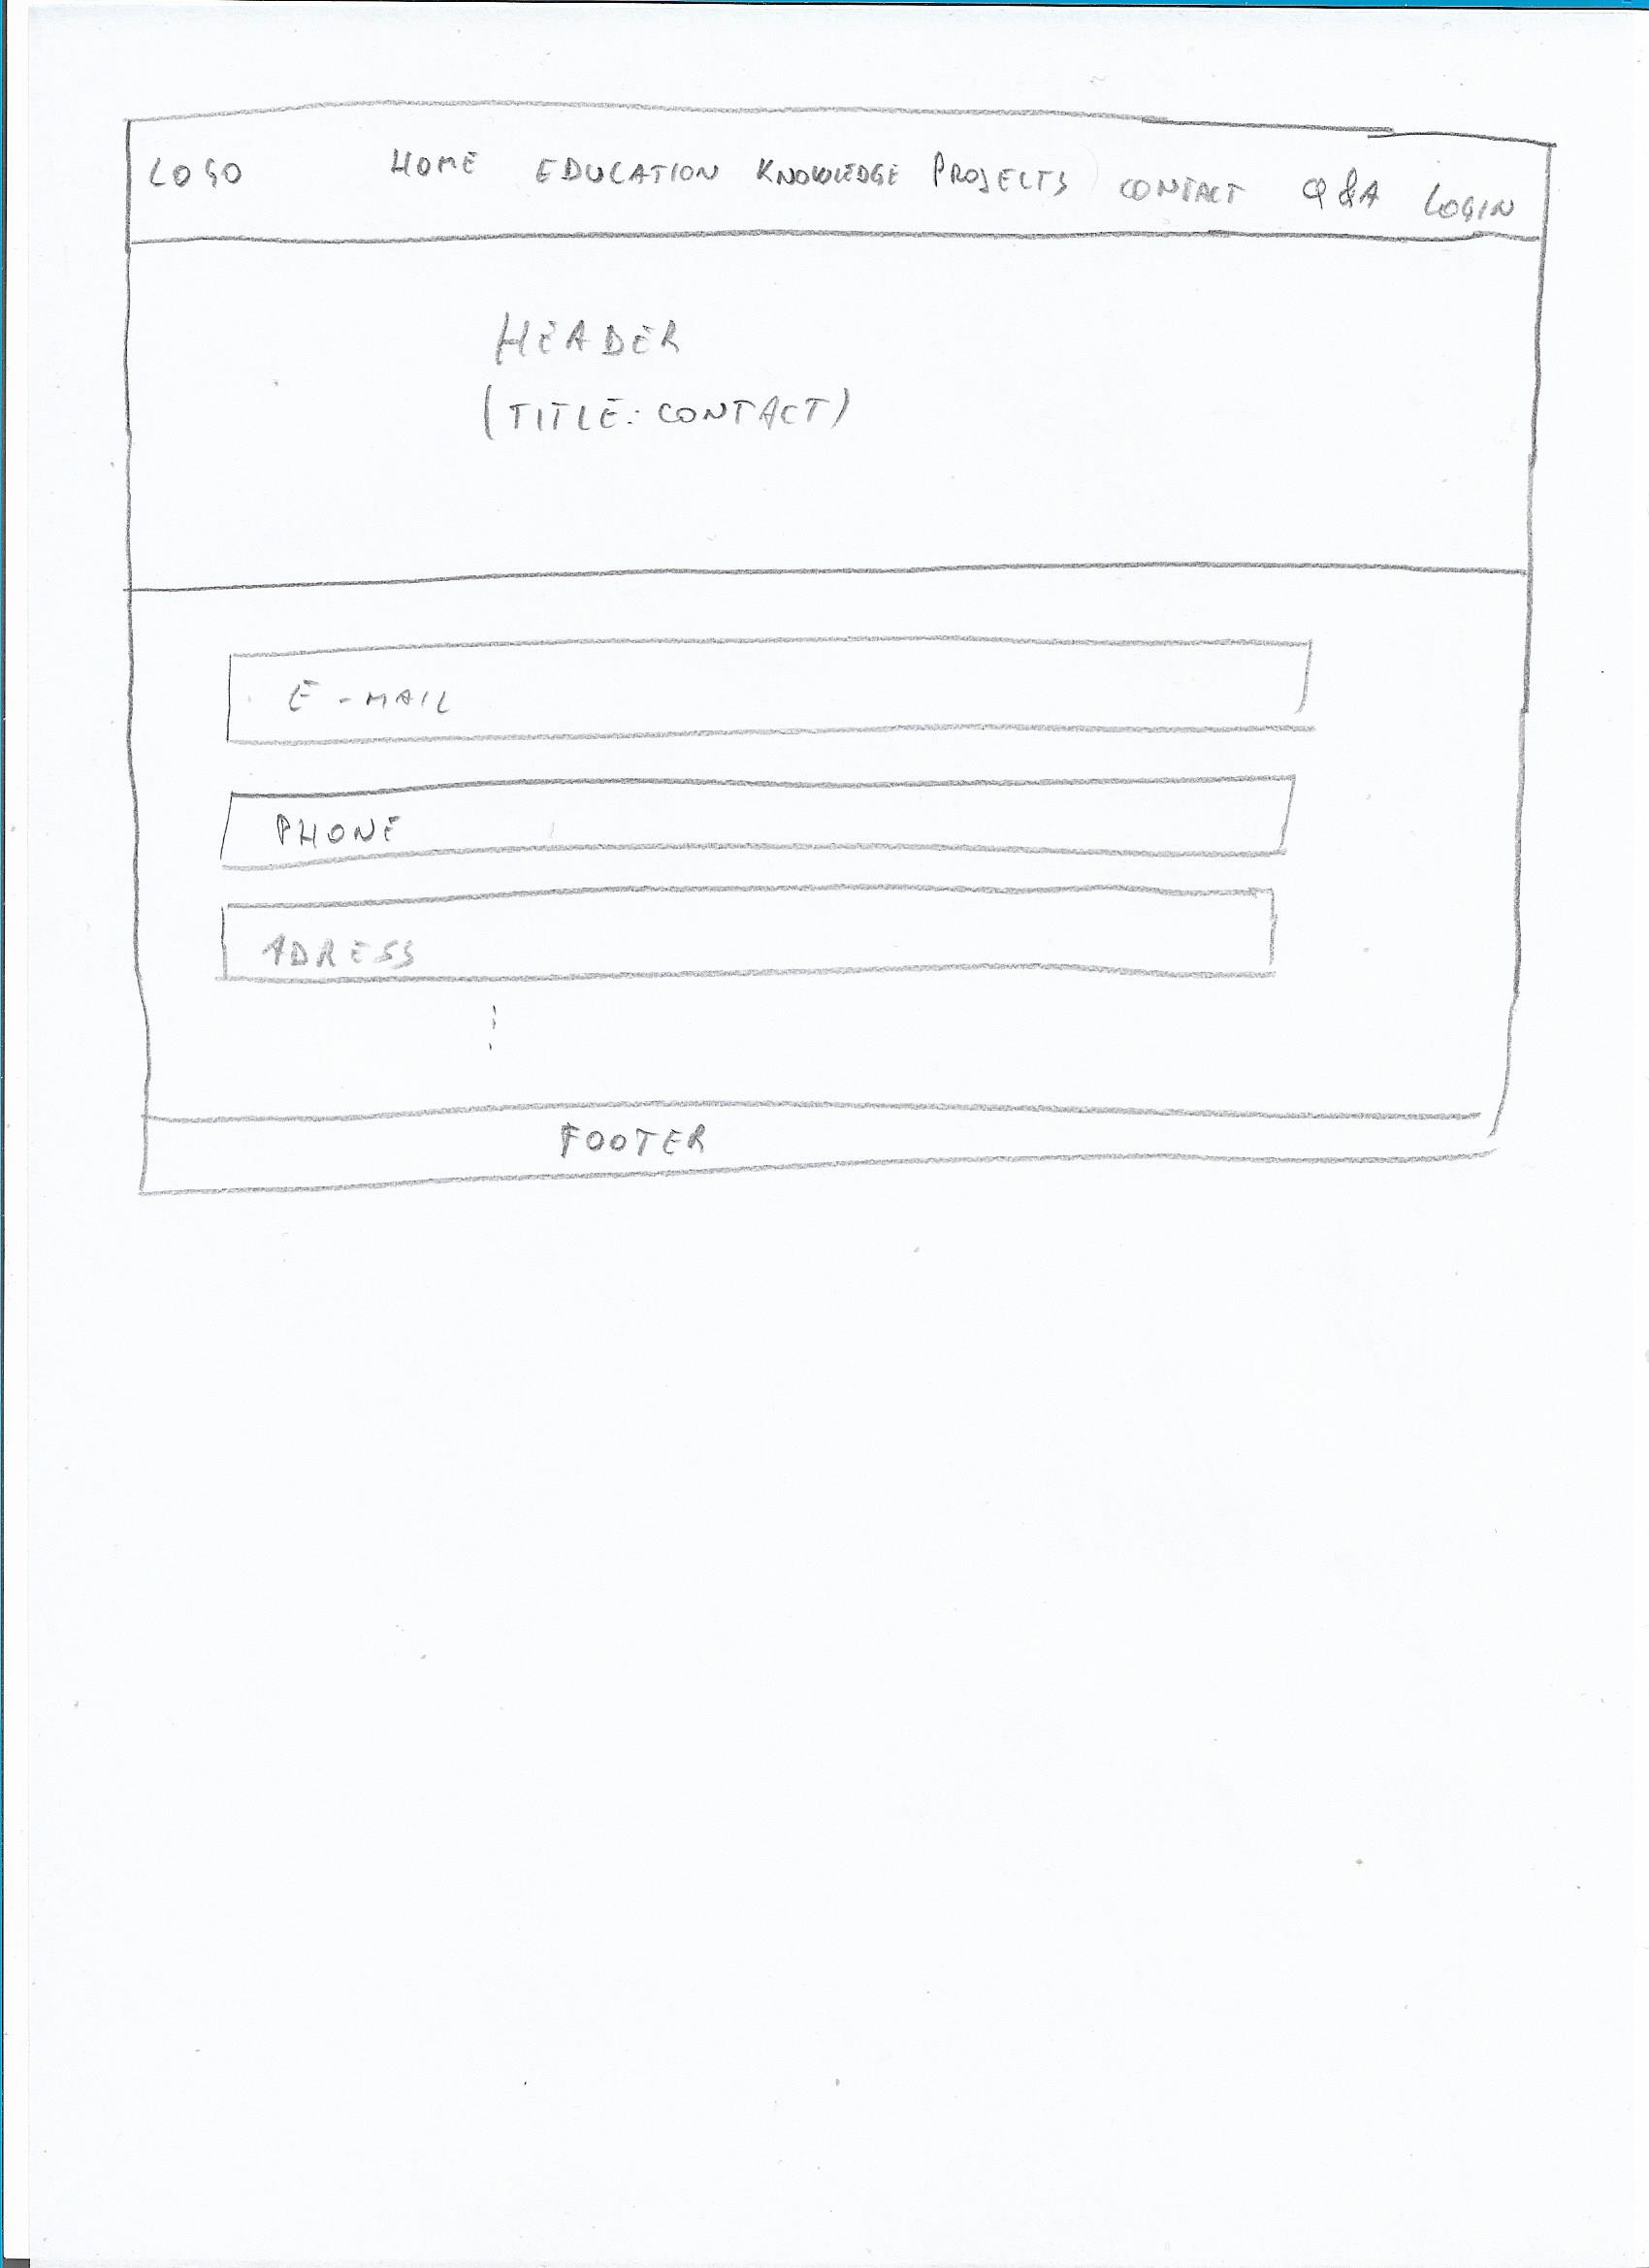 LOGO HOME EDUCATION KNOWLEDGE PROJECTS CONTACT Q&A LOGIN
HEADER
(TITLE: CONTACT)
E-MAIL
PHONE
ADRESS
FOOTER